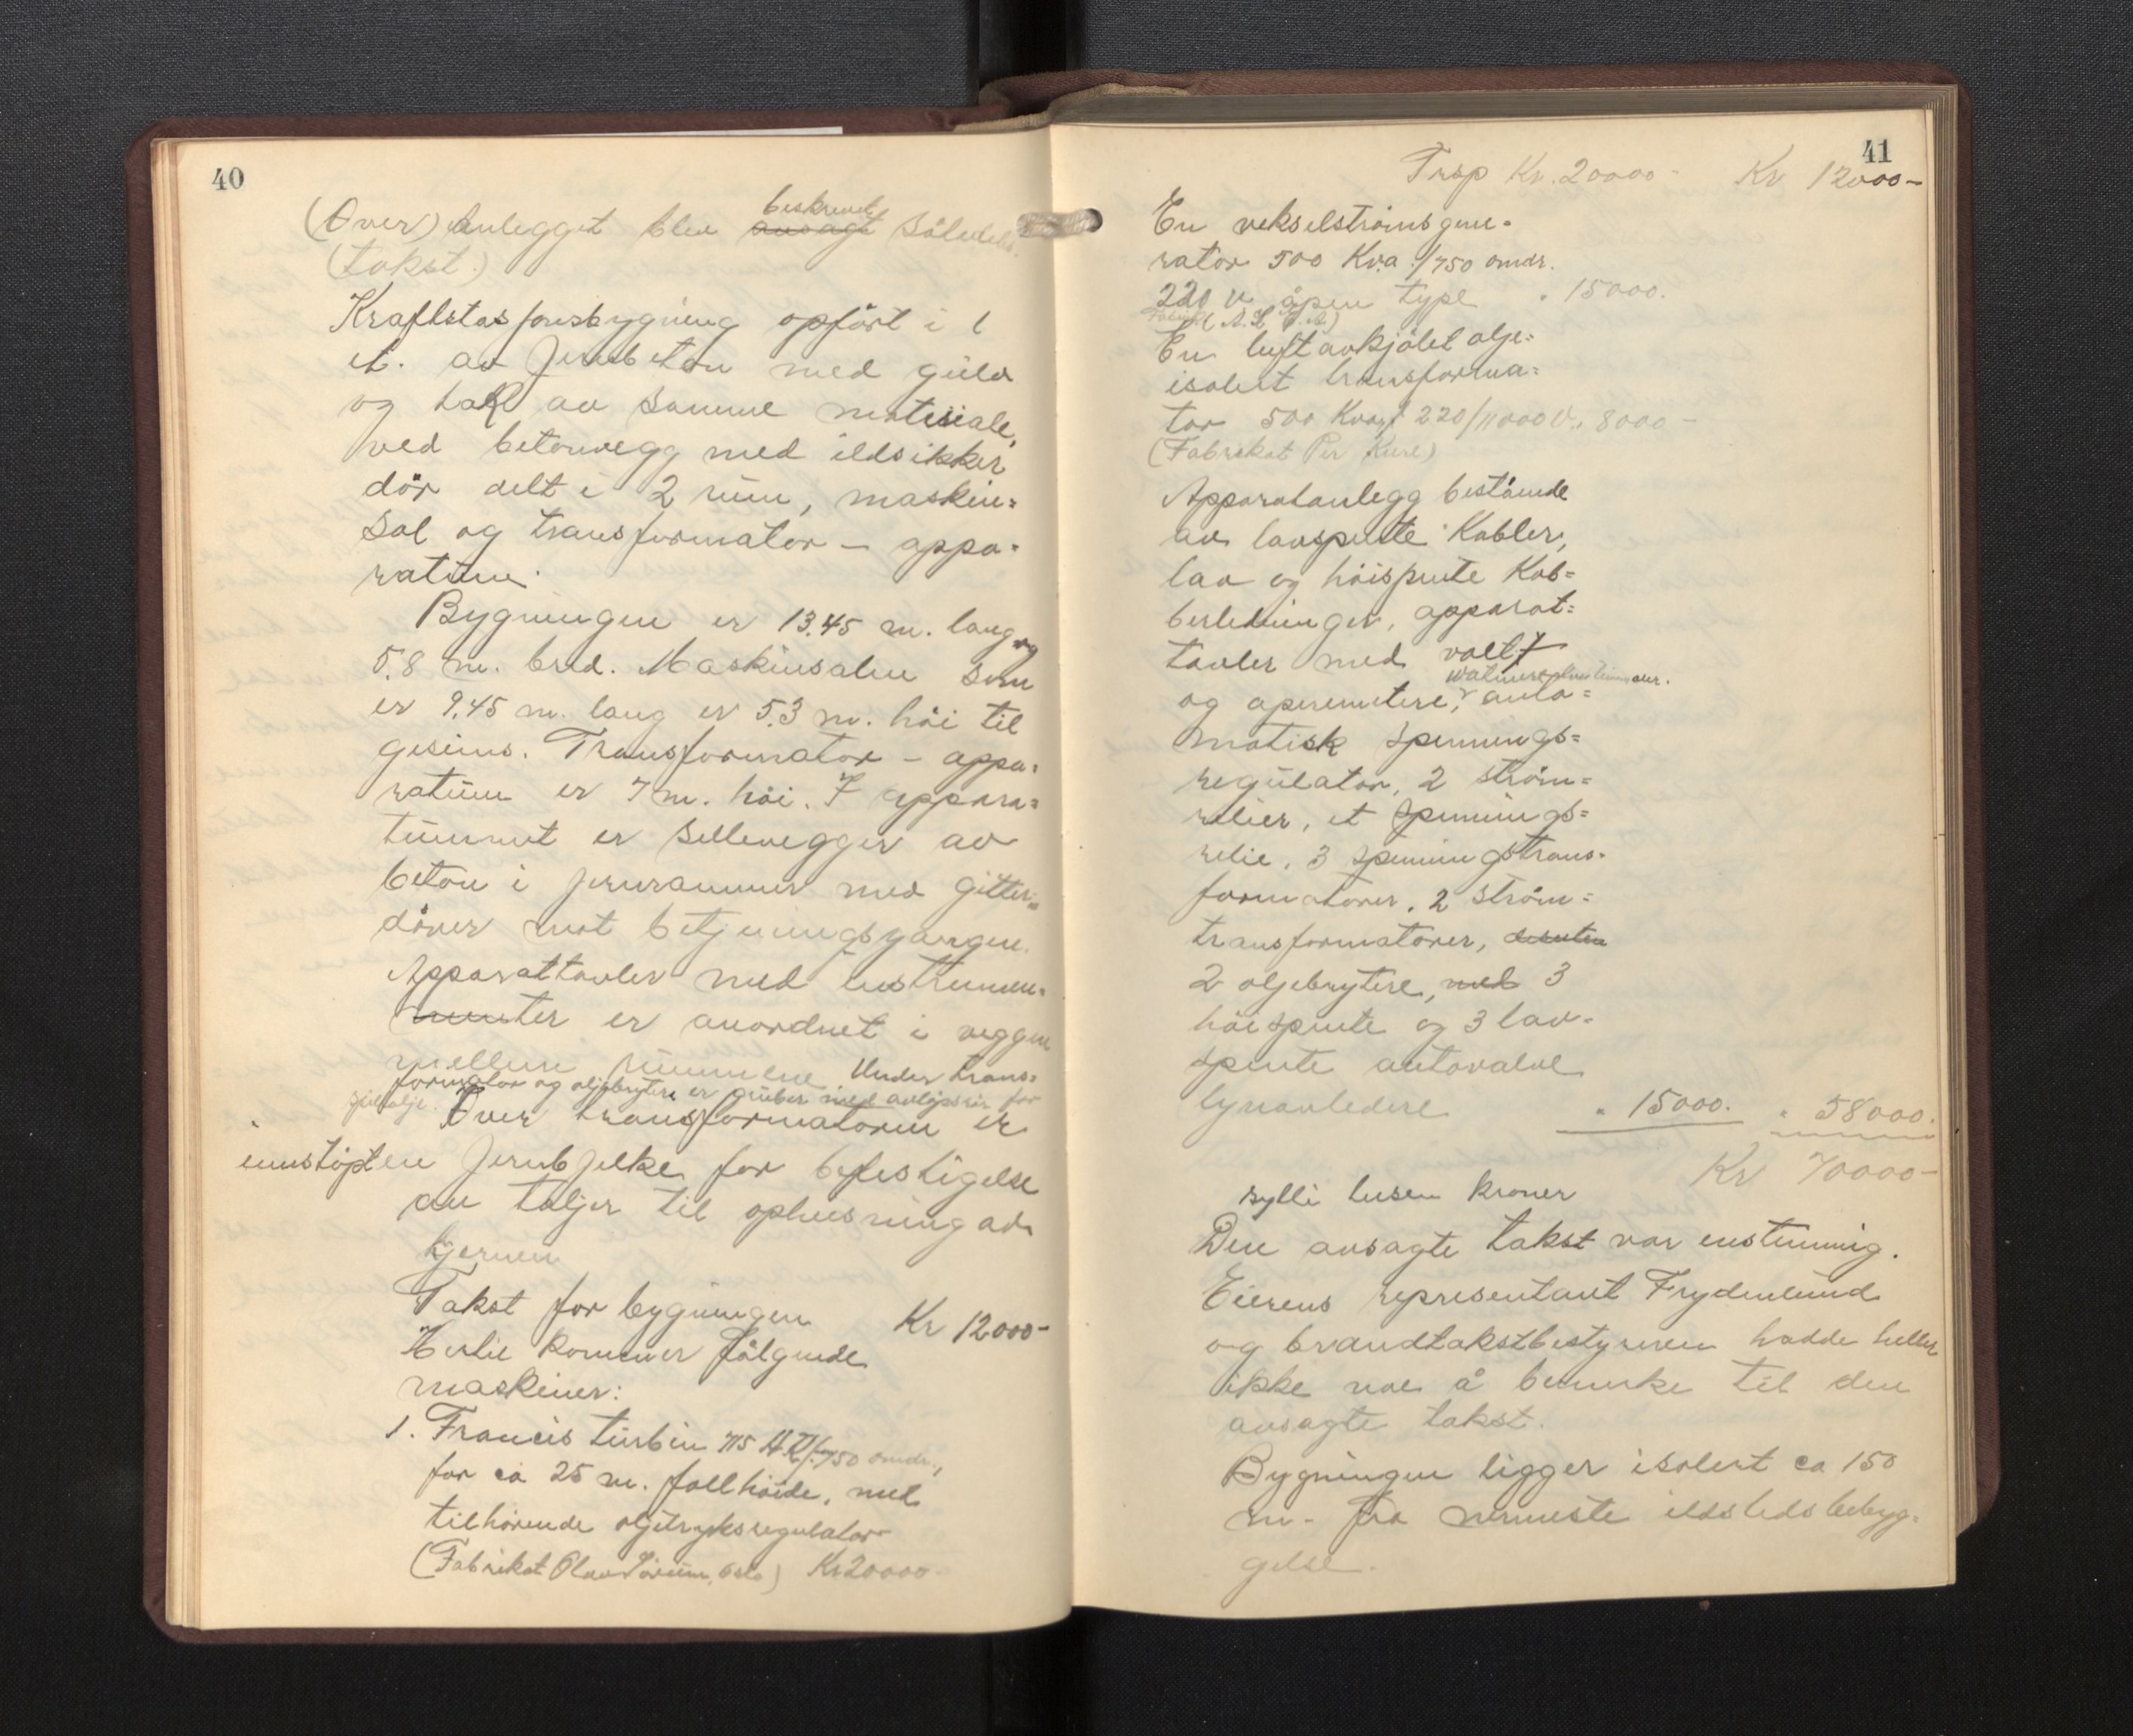 40
(Over) Anlegget blev beskrevet avsagt således
(takst.)
Kraftstasjonsbygning opført i 1
et. av Jernbeton med gulv
og tak av samme materiale,
ved betonvegg med ildsikker
dör delt i 2 rum, maskin=
sal og transformator – appa=
ratrum.
Bygningen er 13.45 m. lang og
5.8 m. bred. Maskinsalen som
er 9.45 m. lang er 5.3 m. höi til
gesims. Transformator – appa=
ratrum er 7 m. höi. I appara=
trummet er sellevegger av
beton i jernrammer med gitter=
dörer mot betjeningsgangen.
Apparattavler med instrumen=
menter er anordnet i veggen
mellem rummene. Under trans=
formator og oljebrytere er gruber med avlöpsrör for
olje. Over transformatoren er
innstöpt en Jernbjelke for befestigelse
av taljer til ophisning av
kjernen
Takst for bygningen Kr 12000-
Hertil kommer fölgende
maskiner:
1. Francis turbin 715 H.K/750 omdr.,
for ca 25 m. fallhöide, med
tilhörende oljetryksregulator
(Fabrikat Oslo) Kr 20000-
41
Trsp Kr. 20000- Kr 12000-
En vekselströmsgene=
rator 500 Kva /750 omdr.
220 v. åpen type " 15000.
En luftavkjölet olje=
isolert transforma=
tor 500 Kva 220/11000 V. " 8000-
(Fabrikat Per Kure)
Apparatanlegg bestående
av lavspente Kabler,
lav og höispente Kob=
berledninger, apparat=
tavler med volt
og aperemetere, auto=
matisk spennings=
regulator, 2 ström=
relier, et spennings=
relie, 3 spenningstrans=
formatorer, 2 ström=
transformatorer,
2 oljebrytere, med 3
höispente og 3 lav=
spente autovalve
lynavledere " 15000. " 58000.
Kr 70000-
sytti tusen kroner
Den avsagte takst var enstemmig.
Eierens representant Frydenlund
og brandtakstbestyreren hadde heller
ikke noe å bemerke til den
avsagte takst.
Bygningen ligger isolert ca 150
m. fra nermeste ildstedsbebyg=
gelse.